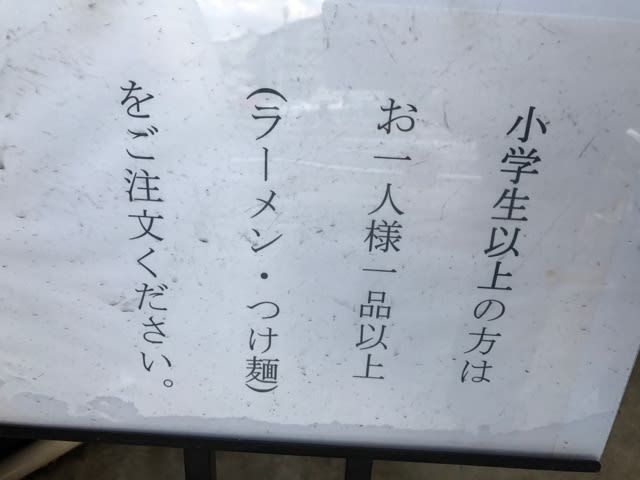 小学生以上の方は
お一人様一品以上
(ラーメン・つけ麺)
をご注文ください。